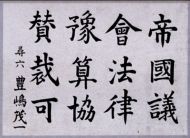 帝國議
會法律
豫算協
賛裁可
尋六 豊嶋茂一